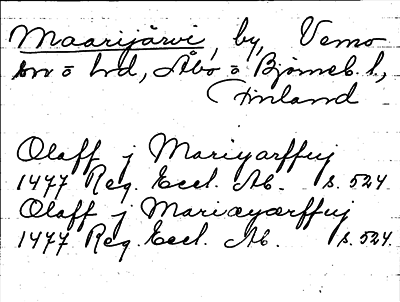 Maarijärvi, by, Vemo
sn o hrd, Åbo o Björneb. l.,
Finland
Olaff j Mariyarffuj
1477 Reg. Eccl. Ab. s. 524
Olaff j Mariæyærffuj
1477 Reg. Eccl. Ab. s. 524.